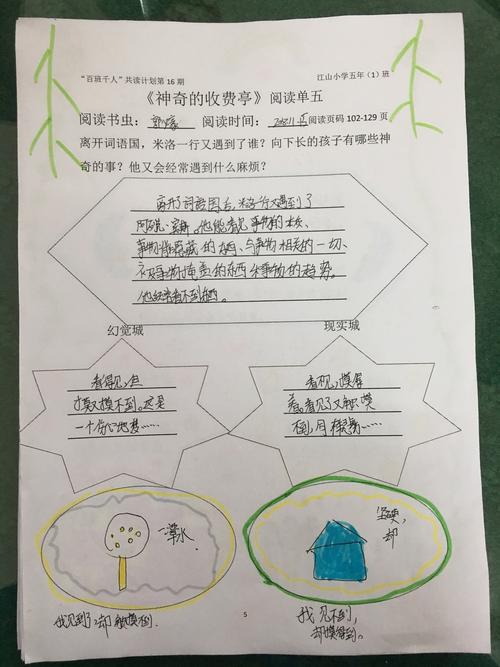 “百班千人”共读计划第 16 期
江山小学五年（1）班
《神奇的收费亭》阅读单五
阅读书虫： 阅读时间： 阅读页码 102-129 页
离开词语国，米洛一行又遇到了谁？向下长的孩子有哪些神
奇的事？他又会经常遇到什么麻烦？
离开了词语国后，米洛一行又遇到了
他能看见事物的本质、
事物背后藏的东西、与事物相关的一切、
被事物掩盖的东西和事物的趋势。
他经常看不到
幻觉城
现实城
看得见，但
摸又摸不到。这是
一个
看不见，摸得
着。看见了又触摸
不到，
一滩水
坚硬，
却
我见到了，却触摸不到.
我见不到，
却摸得到。
5